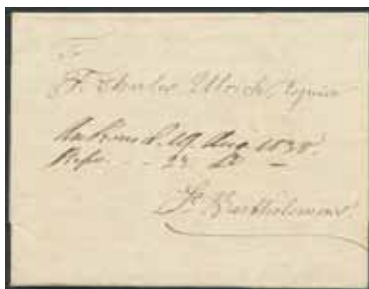 To
F. Charles Ulrich, Esquire
Ank. d. 19 Aug 1838.
23 do —
St Bartholomew.